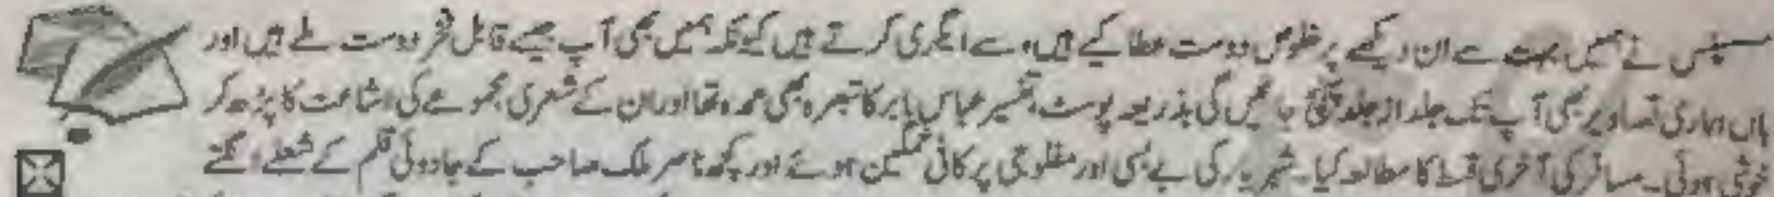 سسپنس نے ہمیں بہت سے ان دیکھے پرخلوص دوست عطا کیے ہیں، سے ایگری کرتے ہیں کیونکہ ہمیں بھی آپ جیسے قابل فخر دوست ملے ہیں اور
ہاں ہماری تصاویر بھی آپ تک جلد از جلد پہنچ جائیں گی بذریعہ پوسٹ، تفسیر عباس بابر کا تبصرہ بھی عمدہ تھا اور ان کے شعری مجموعے کی اشاعت کا پڑھ کر
خوشی ہوئی۔ مسافر کی آخری قسط کا مطالعہ کیا۔ شہریار کی بے بسی اور مظلومی پر کافی غمگین ہوئے اور کچھ ناصر ملک صاحب کے جادوئی قلم کے شعلے اگلتے